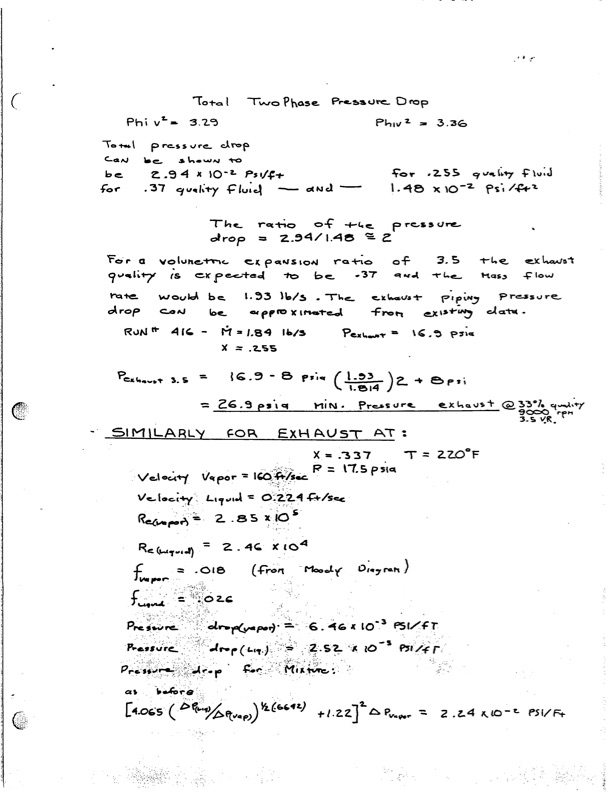 Total Two Phase Pressure Drop
Phi v² = 3.29 Phiv² = 3.36
Total pressure drop
can be shown to
be 2.94 x 10⁻² Psi/ft for .255 quality fluid
for .37 quality fluid — and — 1.48 x 10⁻² Psi/ft²
The ratio of the pressure
drop = 2.94/1.48 ≅ 2
For a volumetric expansion ratio of 3.5 the exhaust
quality is expected to be .37 and the mass flow
rate would be 1.93 lb/s. The exhaust piping pressure
drop can be approximated from existing data.
RUN# 416 - Ṁ = 1.84 lb/s Pexhaust = 16.9 psia
X = .255
Pexhaust 3.5 = 16.9 - 8 psia (1.93/1.814) 2 + 8 psi
= 26.9 psia MIN. Pressure exhaust @ 33% quality
9000 rpm
3.5 V.R.
- SIMILARLY FOR EXHAUST AT:
X = .337 T = 220°F
P = 17.5 psia
Velocity Vapor = 160 ft/sec
Velocity Liquid = 0.224 ft/sec
Re(vapor) = 2.85 x 10⁵
Re(Liquid) = 2.46 x 10⁴
fvapor = .018 (from Moody Diagram)
fLiquid = .026
Pressure drop(vapor) = 6.46 x 10⁻³ PSI/FT
Pressure drop(Liq.) = 2.52 x 10⁻⁵ PSI/FT
Pressure drop for Mixture:
as before
[4.065 (ΔP(Liq)/ΔP(vap))^½(6642) + 1.22]² ΔPvapor = 2.24 x 10⁻² PSI/Ft